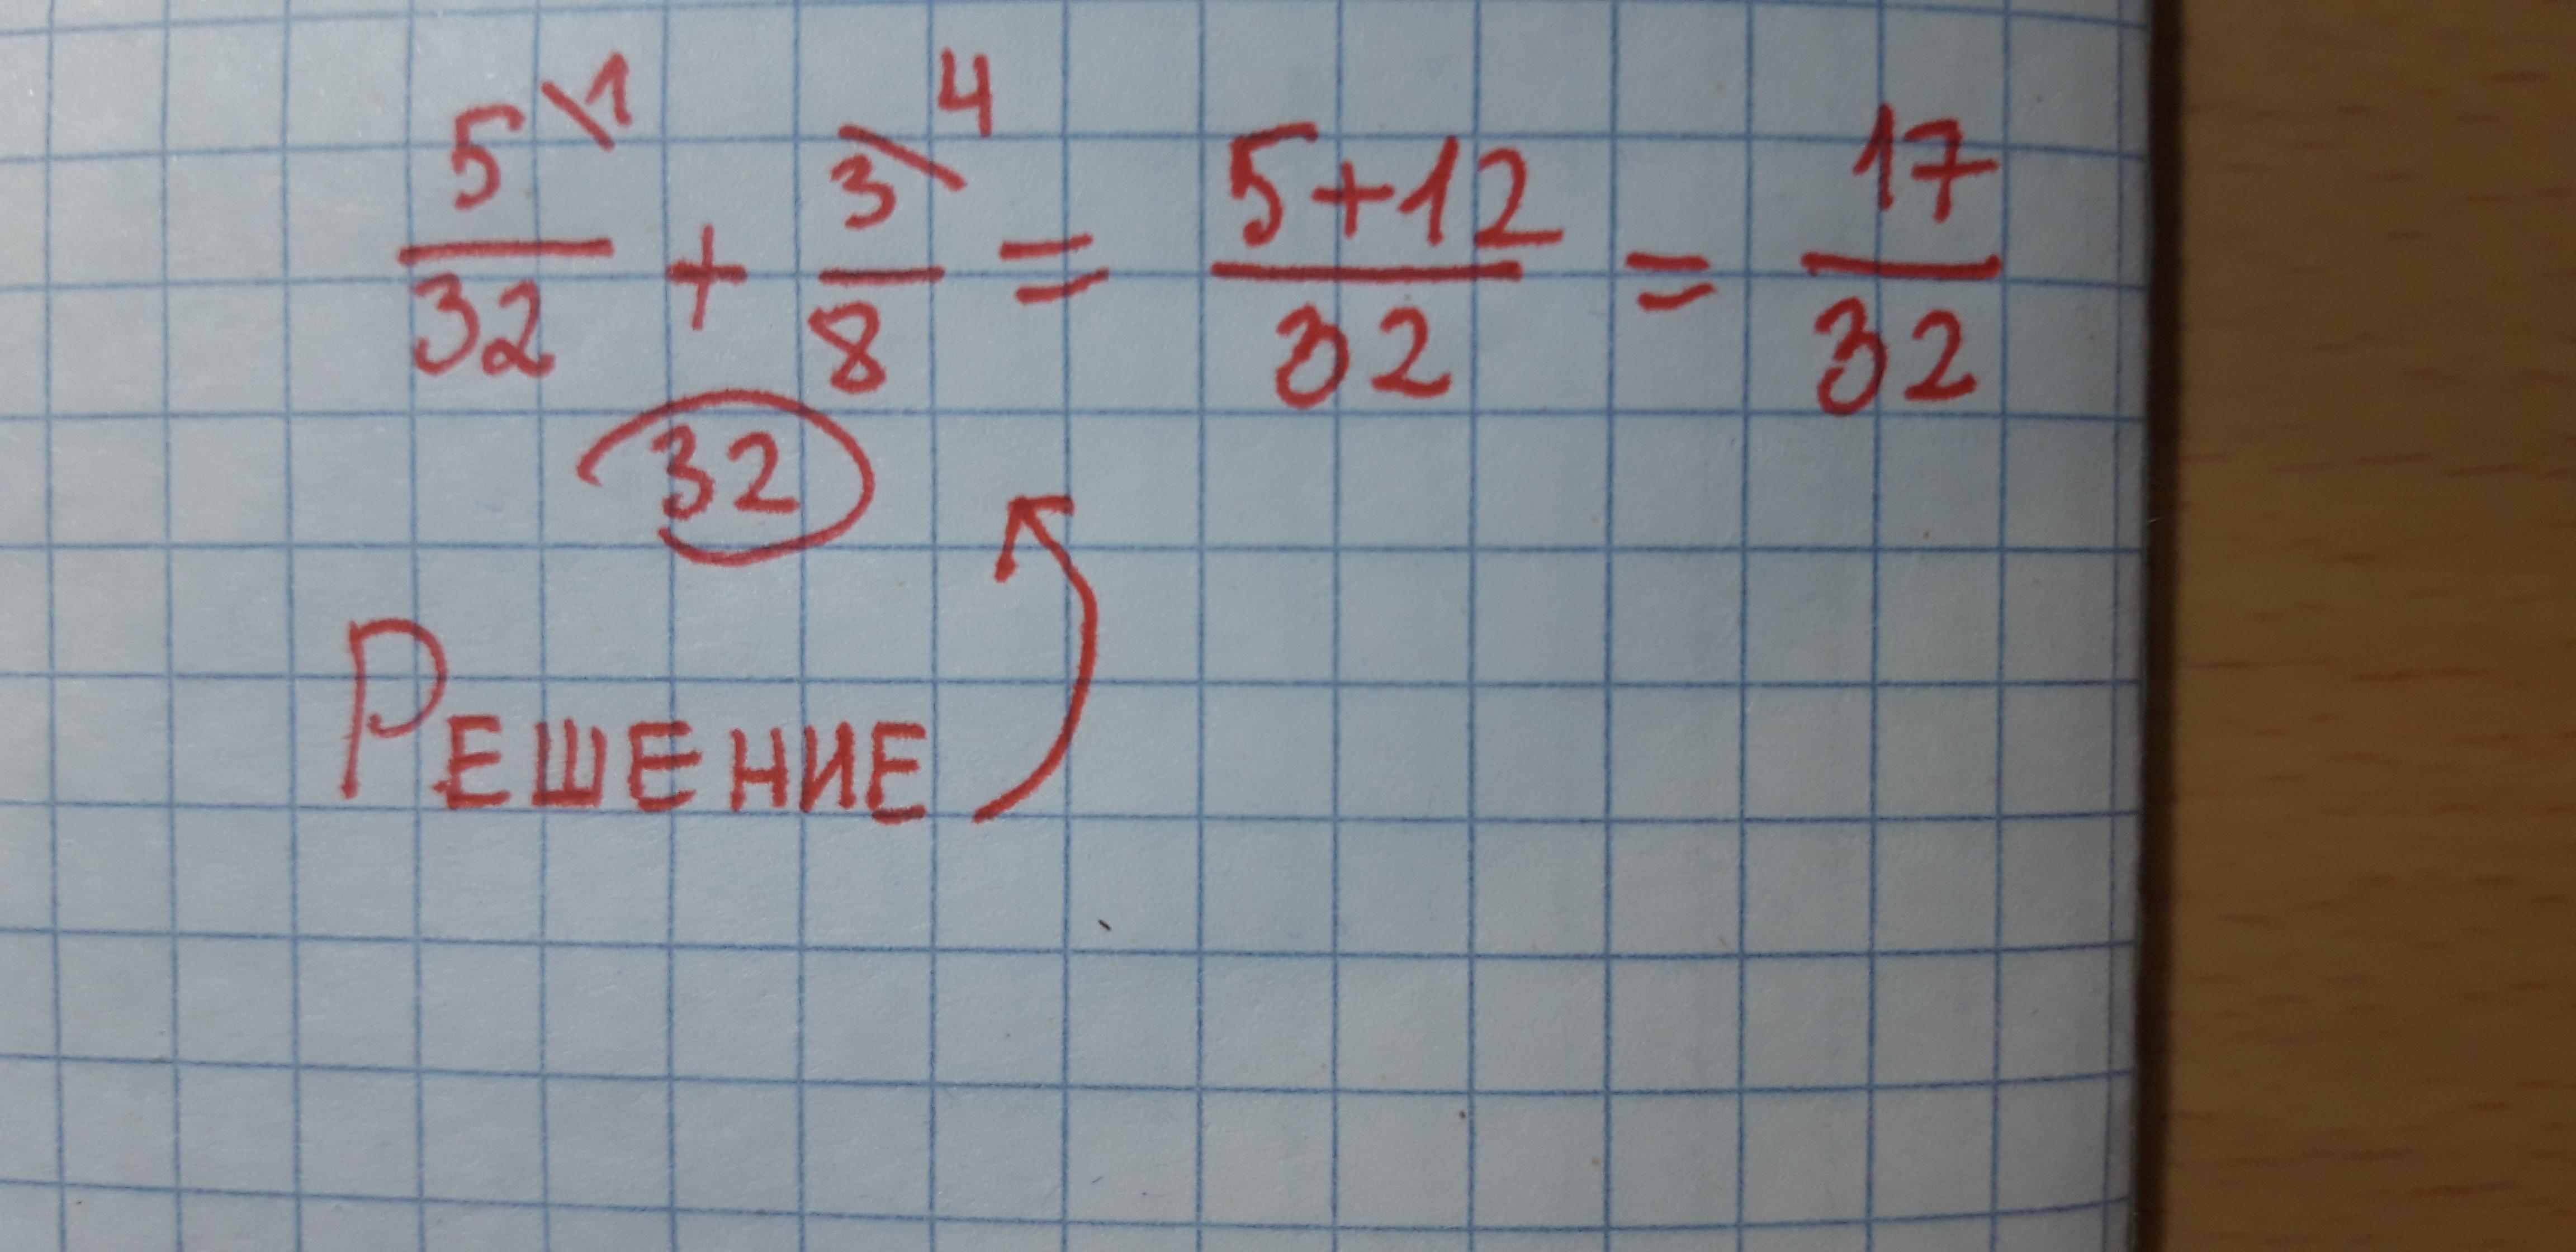 5\1/32 + 3\4/8 = 5+12/32 = 17/32
32
РЕШЕНИЕ